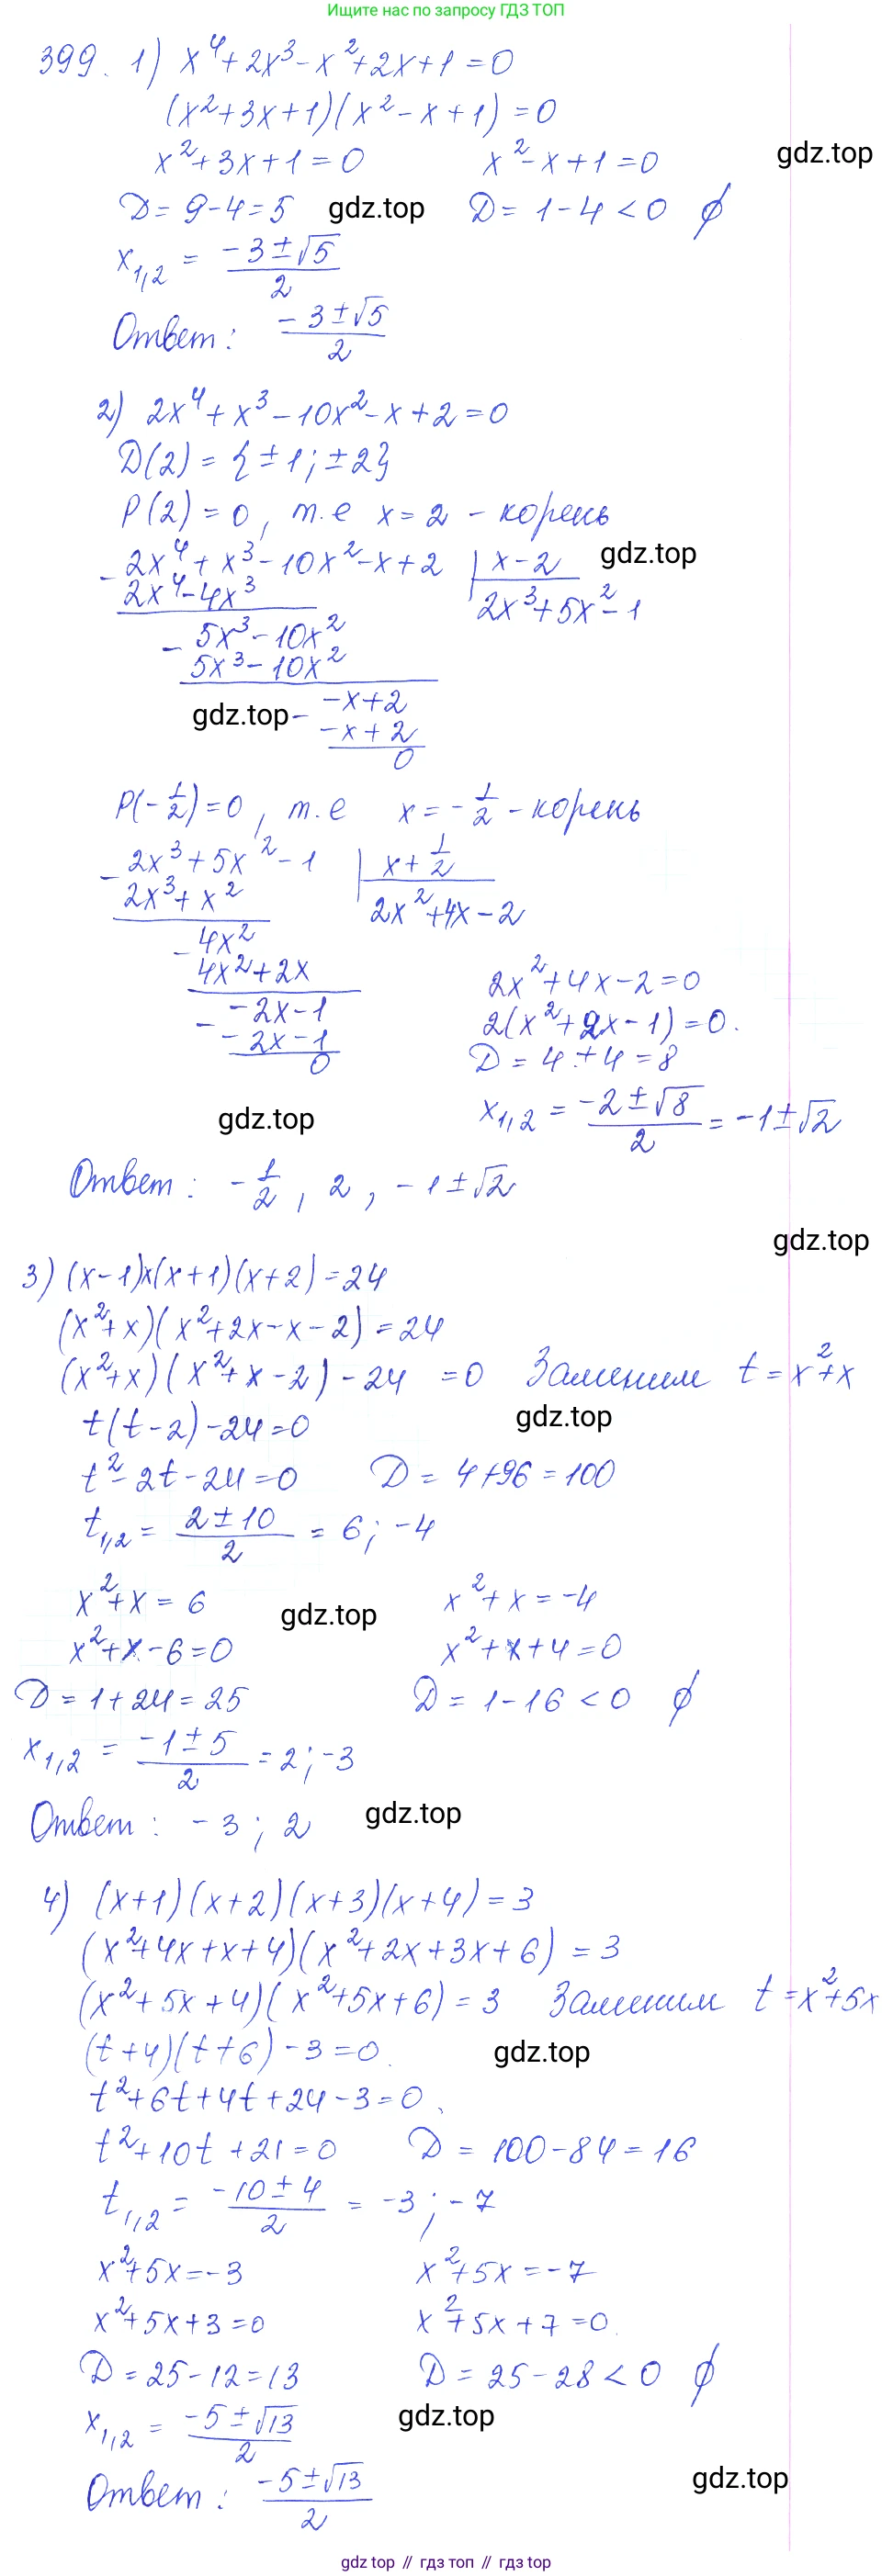 Ищите нас по запросу ГДЗ ТОП
399. 1) x⁴+2x³-x²+2x+1=0
(x²+3x+1)(x²-x+1)=0
x²+3x+1=0 x²-x+1=0 gdz.top
D=9-4=5 gdz.top D=1-4<0 ∅
x₁,₂ = (-3±√5)/2
Ответ: (-3±√5)/2
2) 2x⁴+x³-10x²-x+2=0
D(2)={±1;±2}
P(2)=0, т.е x=2 - корень
- 2x⁴+x³-10x²-x+2 | x-2 gdz.top
2x⁴-4x³ 2x³+5x²-1
- 5x³-10x²
5x³-10x²
gdz.top - -x+2
-x+2
0
P(-1/2)=0, т.е x=-1/2 - корень
- 2x³+5x²-1 | x+1/2
2x³+x² 2x²+4x-2
- 4x²
4x²+2x 2x²+4x-2=0
- -2x-1 2(x²+2x-1)=0.
-2x-1 D=4+4=8
0
gdz.top x₁,₂ = (-2±√8)/2 = -1±√2
Ответ: -1/2, 2, -1±√2
gdz.top
3) (x-1)x(x+1)(x+2)=24
(x²+x)(x²+2x-x-2)=24
(x²+x)(x²+x-2)-24=0 Заменим t=x²+x
t(t-2)-24=0 gdz.top
t²-2t-24=0 D=4+96=100
t₁,₂ = (2±10)/2 = 6; -4
x²+x=6 gdz.top x²+x=-4
x²+x-6=0 x²+x+4=0
D=1+24=25 D=1-16<0 ∅
x₁,₂ = (-1±5)/2 = 2; -3
Ответ: -3; 2 gdz.top
4) (x+1)(x+2)(x+3)(x+4)=3
(x²+4x+x+4)(x²+2x+3x+6)=3
(x²+5x+4)(x²+5x+6)=3 Заменим t=x²+5x
(t+4)(t+6)-3=0. gdz.top
t²+6t+4t+24-3=0.
t²+10t+21=0 D=100-84=16
t₁,₂ = (-10±4)/2 = -3; -7
x²+5x=-3 x²+5x=-7
x²+5x+3=0 x²+5x+7=0.
D=25-12=13 D=25-28<0 ∅
x₁,₂ = (-5±√13)/2 gdz.top
Ответ: (-5±√13)/2 gdz.top
gdz.top // гдз топ // гдз top